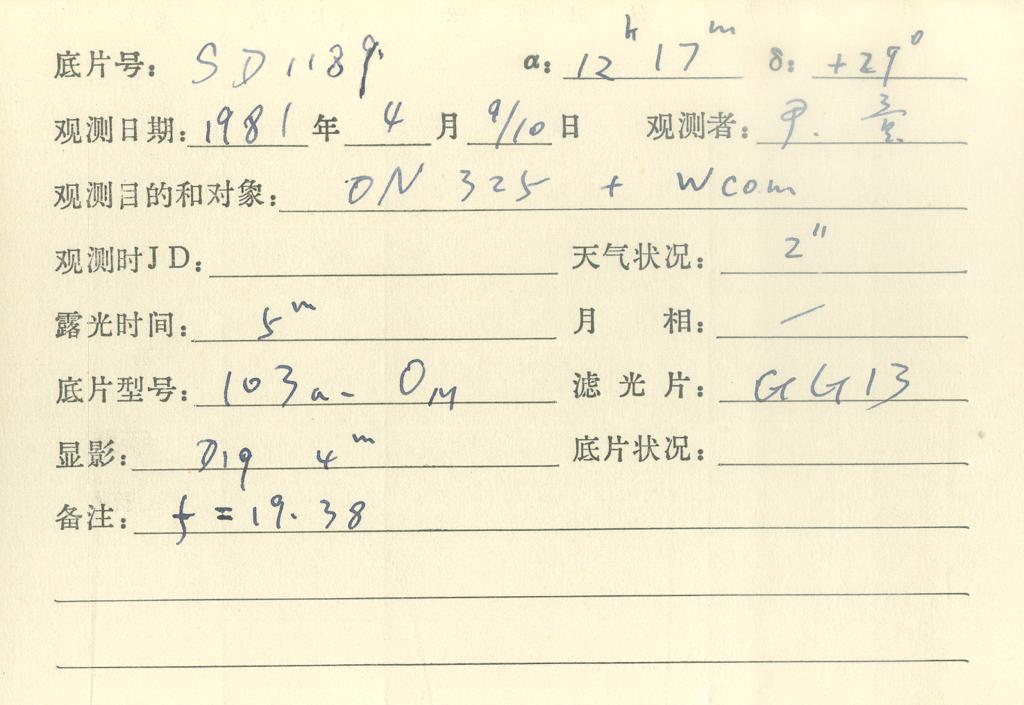 底片号: SD1189 α: 12h 17m δ: +29°
观测日期: 1981 年 4 月 9/10 日 观测者:
观测目的和对象: ON 325 + W com
观测时JD: 天气状况: 2"
露光时间: 5m 月 相: /
底片型号: 103a-O 滤光片: GG13
显影: D19 4m 底片状况:
备注: f = 19.38